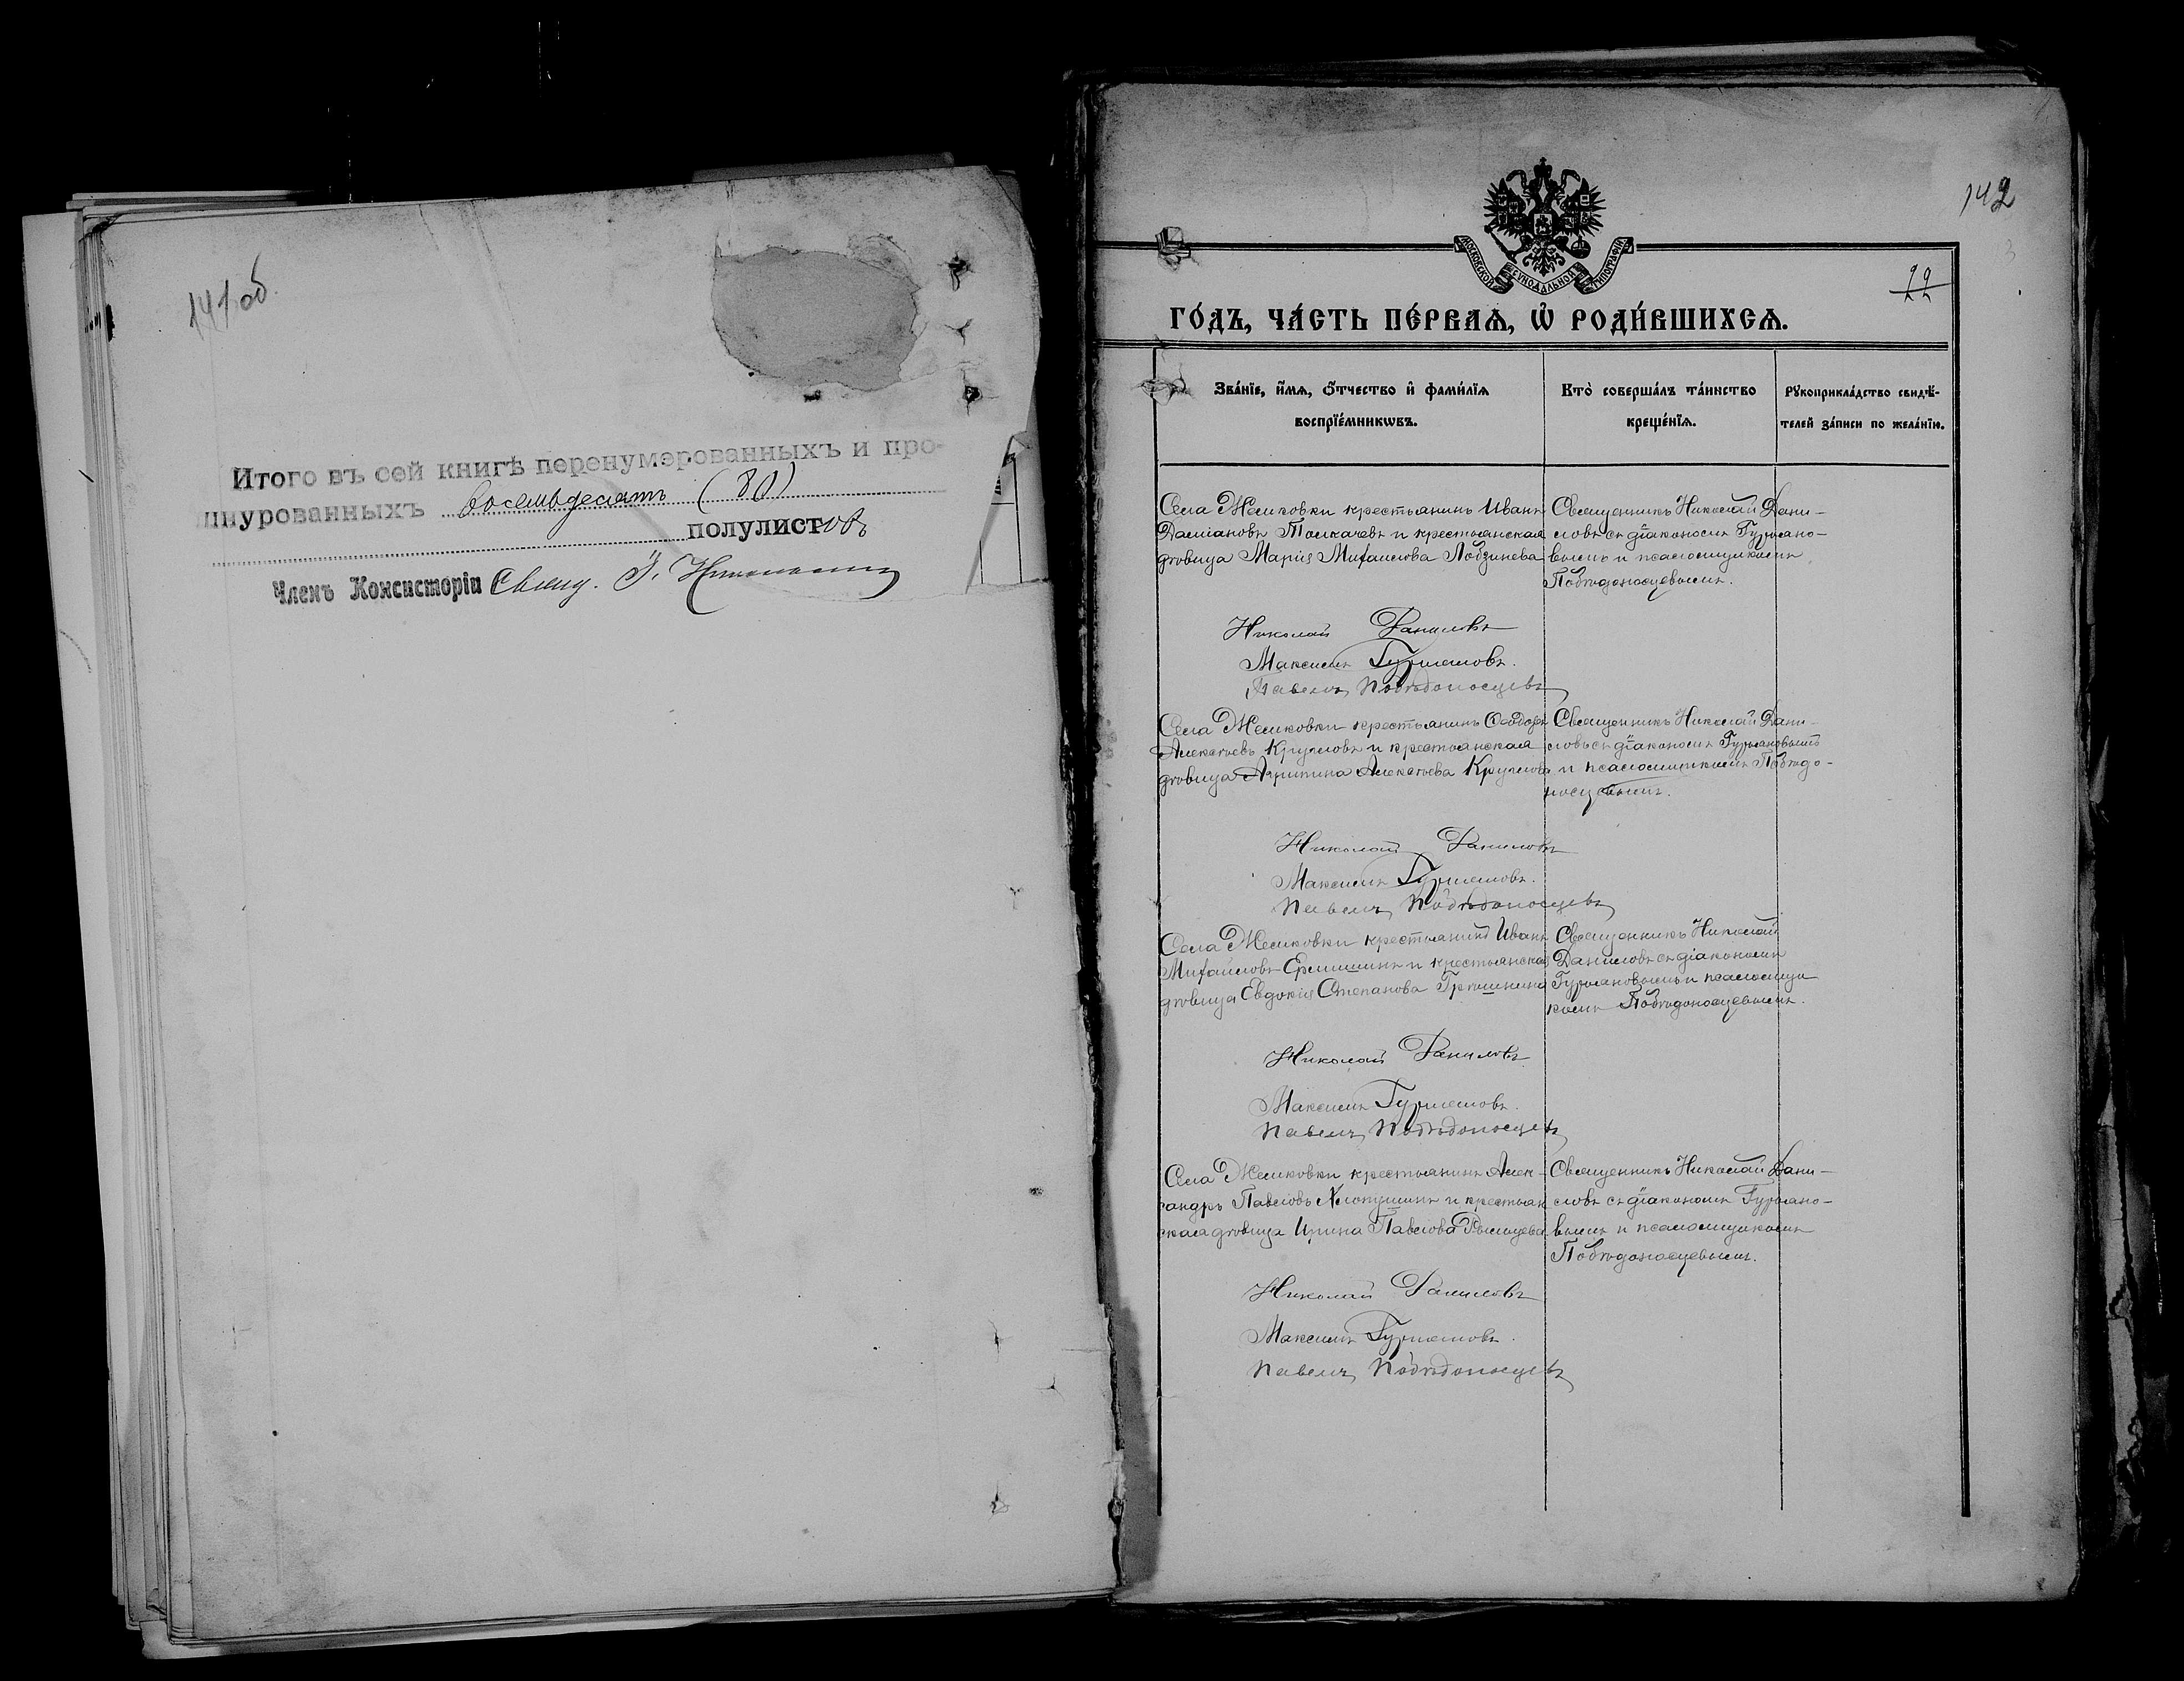 141об.
Итого въ сей книгѣ перенумерованныхъ и про-
шнурованныхъ восемьдесятъ (80)
полулистовъ
Членъ Консисторіи Свящ. І.
142
МОСКОВСКОЙ СѴНОДАЛЬНОЙ ТИПОГРАФІИ
22
ГО́ДЪ, ЧА́СТЬ ПЕ́РВАѦ, Ѡ҆ РОДИ́ВШИХСѦ.
Зва́нїе, и҆́мѧ, ѻ҆́тчество и҆ фами́лїѧ
воспрїе́мникѡвъ.
Кто̀ соверша́лъ та́инство
креще́нїѧ.
Рꙋкоприкла́дство свидѣ́-
телей за́писи по жела́нїю.
Села Жемковки крестьянинъ Иванъ
Даміановъ Толкачевъ и крестьянская
дѣвица Марія Михаилова Лобзинева
Священникъ Николай Дани-
ловъ съ діакономъ Гурьяно-
вымъ и псаломщикомъ
Побѣдоносцевымъ.
Николай Даниловъ
Максимъ Гурьяновъ.
Павелъ Побѣдоносцевъ
Села Жемковки крестьянинъ Ѳеодоръ
Алексѣевъ Кругловъ и крестьянская
дѣвица Агрипина Алексѣева Круглова
Священникъ Николай Дани-
ловъ съ діакономъ Гурьяновымъ
и псаломщикомъ Побѣдо-
носцевымъ.
Николай Даниловъ
Максимъ Гурьяновъ.
Павелъ Побѣдоносцевъ
Села Жемковки крестьянинъ Иванъ
Михайловъ Еремшинъ и крестьянская
дѣвица Евдокія Степанова Гришнина
Священникъ Николай
Даниловъ съ діакономъ
Гурьяновымъ и псаломщи
комъ Побѣдоносцевымъ.
Николай Даниловъ
Максимъ Гурьяновъ.
Павелъ Побѣдоносцевъ
Села Жемковки крестьянинъ Алек-
сандръ Павловъ Хлопушинъ и крестьян
ская дѣвица Ирина Павлова
Священникъ Николай Дани-
ловъ съ діакономъ Гурьяно-
вымъ и псаломщикомъ
Побѣдоносцевымъ.
Николай Даниловъ
Максимъ Гурьяновъ.
Павелъ Побѣдоносцевъ